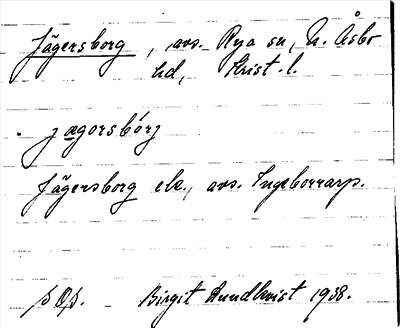 Jägersborg, avs. Rya sn, N. Åsbo
hd, Krist. l.
jagorsbórj
Jägersborg ek., avs. Ingeborrarp.
Birgit Lundkvist 1938.